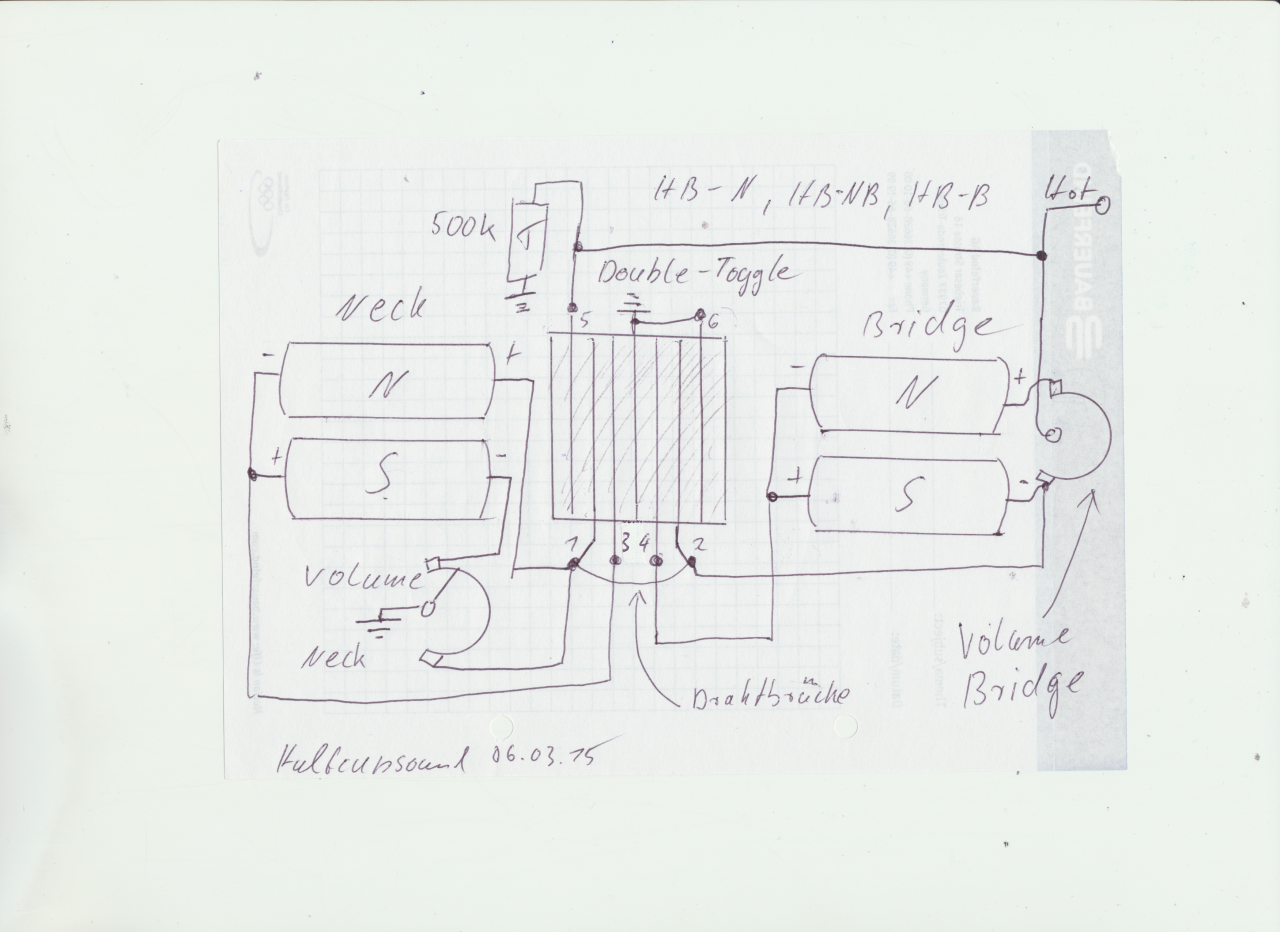 HB-N, HB-NB, HB-B
Hot
500k
T
Double-Toggle
Neck
5
6
Bridge
- N +
- N +
+ S -
+ S -
1 3 4 2
Volume
Neck
Volume
Bridge
Drahtbrücke
06.03.15
BAUERFEIND